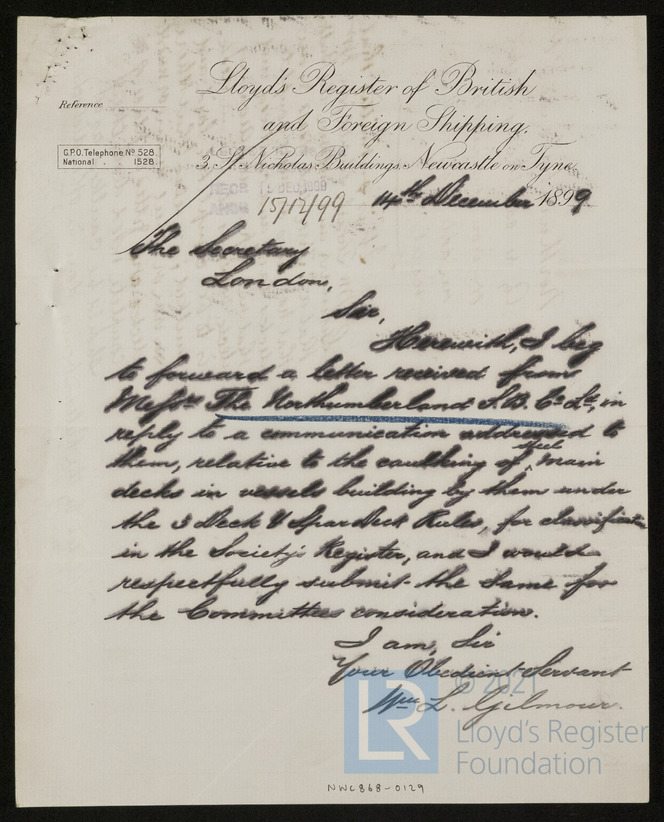 Lloyd's Register of British
and Foreign Shipping.
Reference
G.P.O. Telephone Nº 528.
National . 1528.
3, St. Nicholas Buildings, Newcastle on Tyne
15 DEC 1899
15/12/99
14th December 1899
The Secretary
London,
Sir,
Herewith, I beg
to forward a letter received from
Messrs The Northumberland S. B. Co Ld, in
reply to a communication addressed to
steel
them, relative to the caulking of main
decks in vessels building by them under
the 3 Deck & Spar Deck Rules, for classification
in the Society's Register, and I would
respectfully submit the same for
the Committees consideration.
I am, Sir
Your Obedient Servant
Wm L. Gilmour.
© 2021
LR
Lloyd's Register
Foundation
NWC868-0129